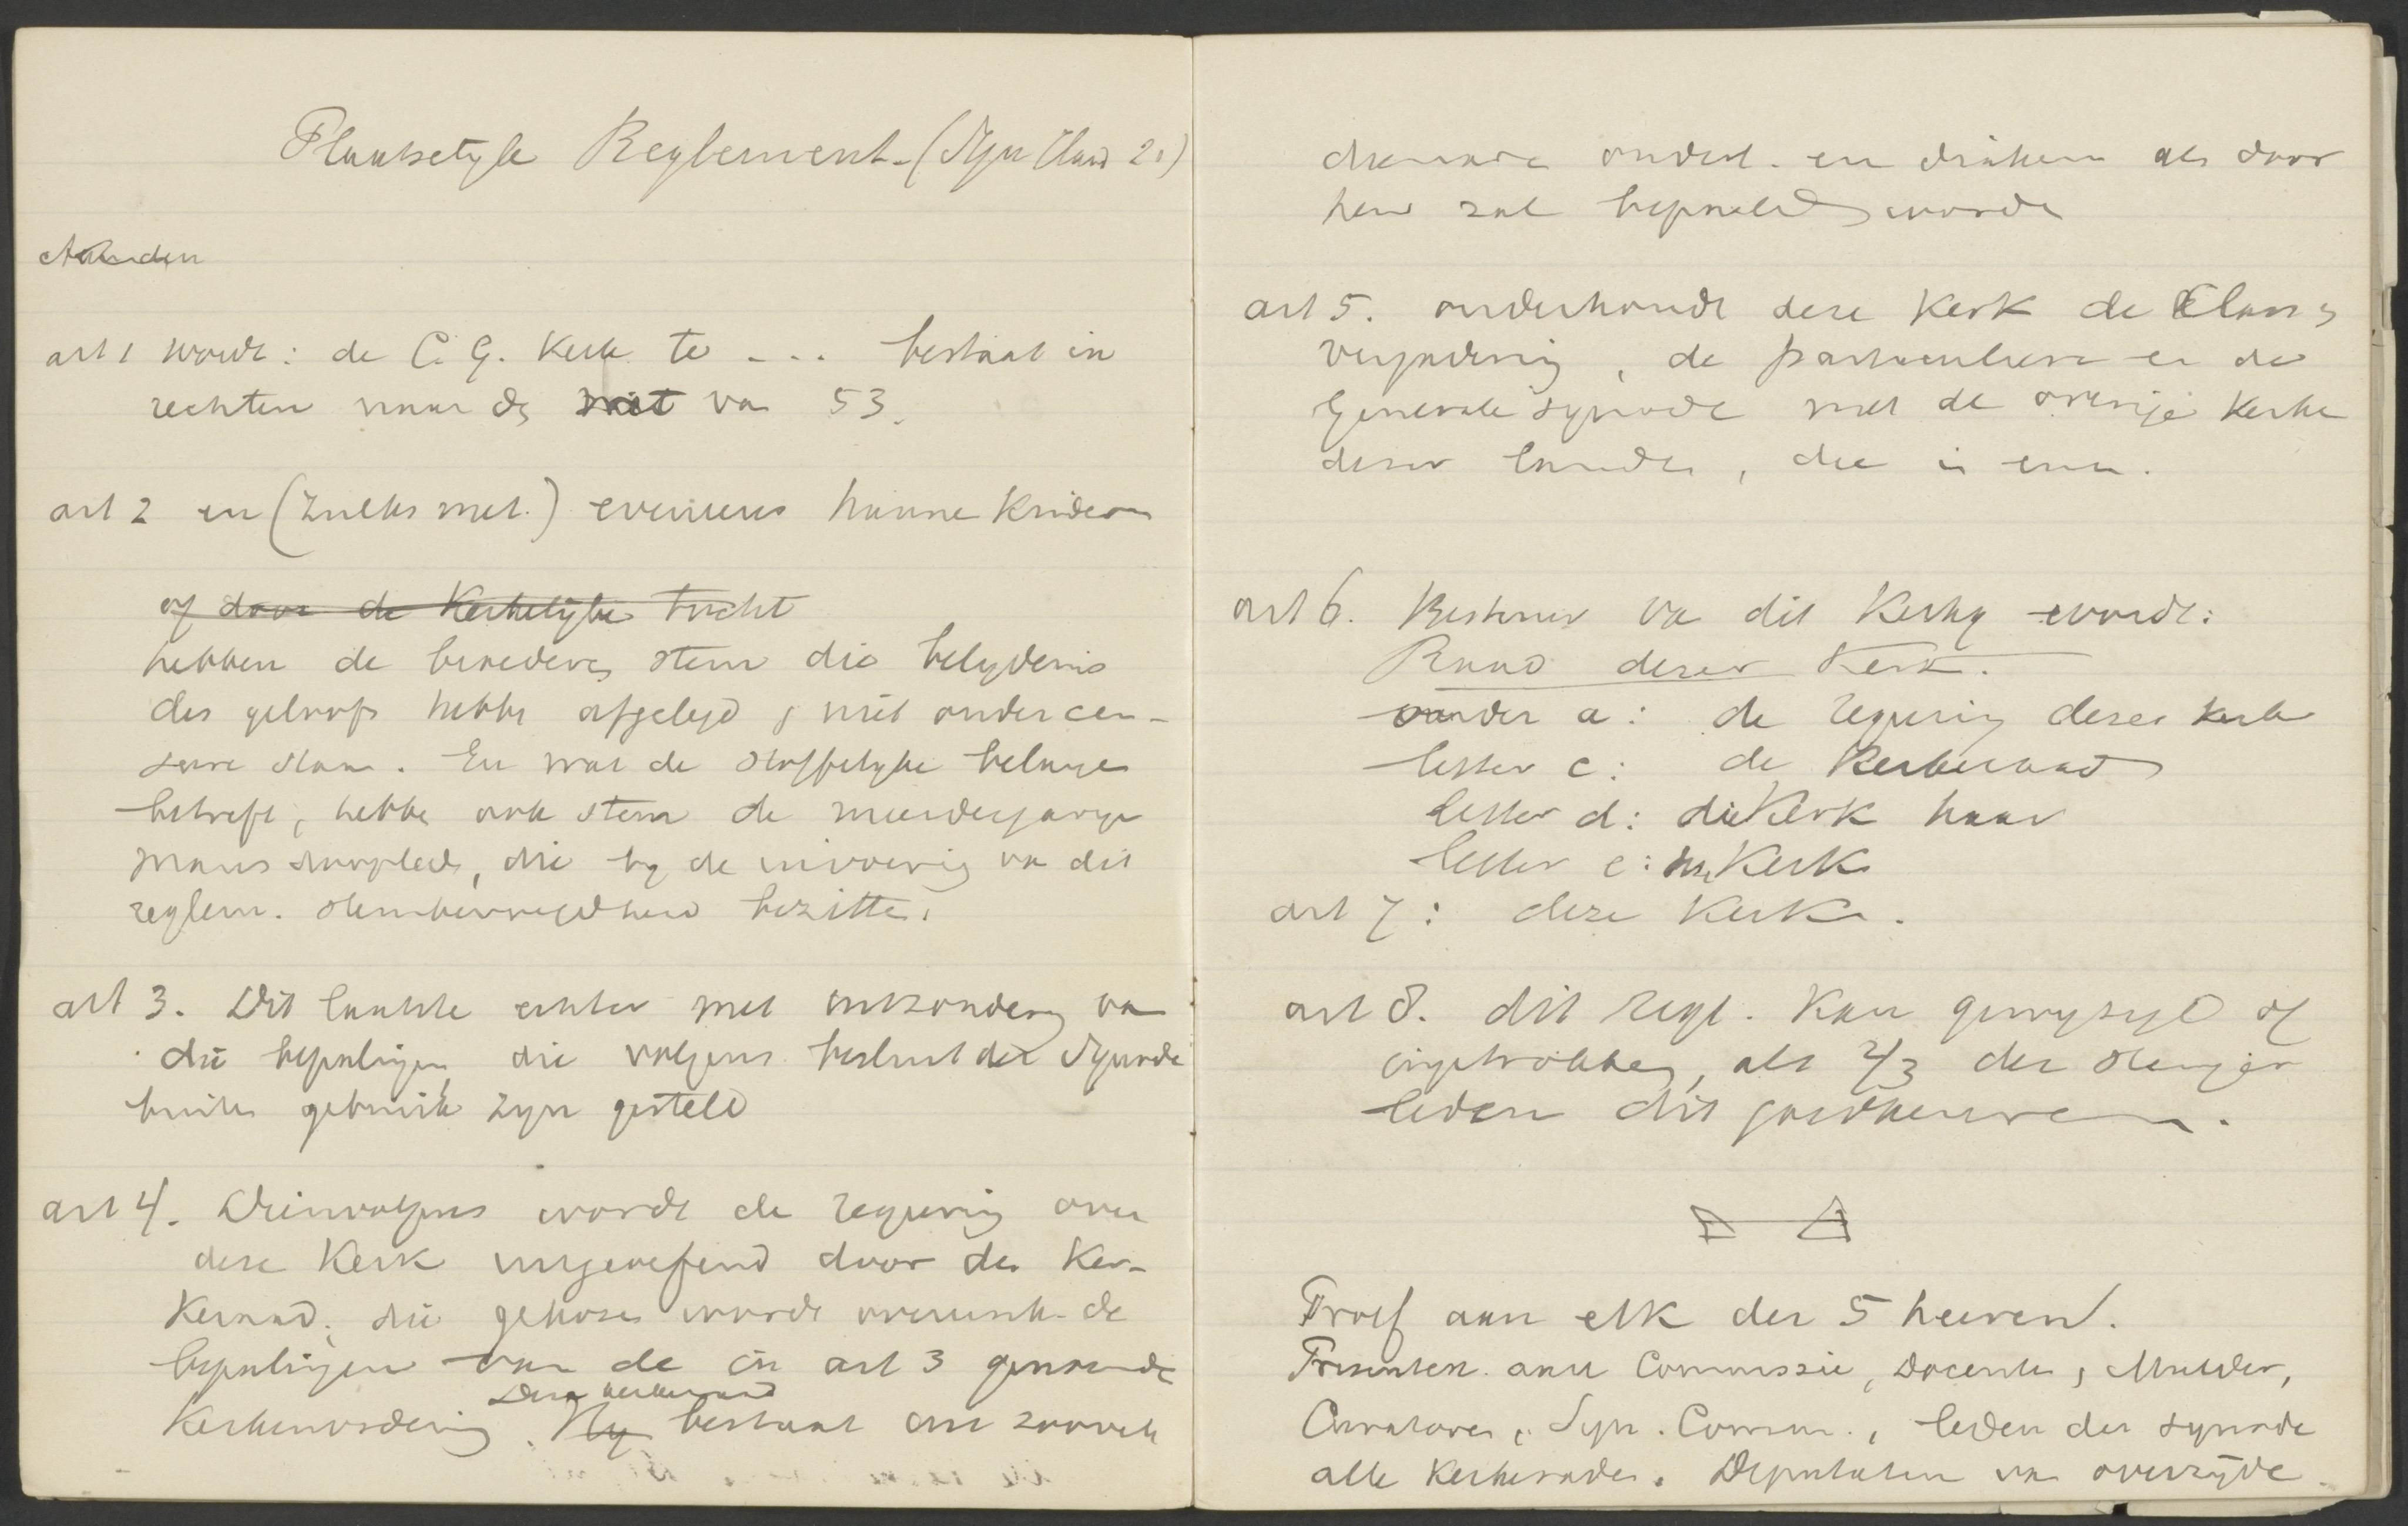 Plaatselyk Reglement - (Syn
art 1 wordt: de C. G. Kerk te ... bestaat in
rechten naar de wet van 53.
art 2 en (zulks met.) eveneens hunne kinderen
of door de Kerkelijke tucht
hebben de broeders stem die belydenis
des geloofs hebbe afgelegd & niet onder cen-
sure staan. En wat de stoffelyke belange
betreft, hebbe ook stem de meerderjarige
manslidmaten, die by de invoering van dit
reglem. stembevoegdheid bezitten.
art 3. Dit laatste echter met uitzondering van
die bepalingen die volgens besluit der Synode
buiten gebruik zyn gesteld
art 4. Dienvolgens wordt de regering over
deze Kerk uitgeoefend door de Ker-
keraad, die gekozen wordt overeenk. de
bepalingen van de in art 3 genoemde
Deze kerkeraad
Kerkenordening. Hy bestaat uit zooveele
dienaren ouderl. en diakenen als door
hem zal bepaald worde
art 5. onderhoudt deze Kerk de Klass.
vergadering, de particuliere en de
Generale Synode met de overige Kerke
dezer landen, die
art 6. Bestuur van dit Kerkg wordt:
Raad dezer Kerk.
onder a: de regering dezer kerk
letter c: de Kerkeraad
letter d: die Kerk haar
letter e: Kerk
art 7: deze Kerk.
art 8. dit regl. Kan gewyzigd of
ingetrokken, als 2/3 der stemger
leden dit goedkeuren.
Proef aan elk der 5 heeren.
Presentex. aan Commissie, Docenten, Mulder,
Curatoren, Syn. Comm., leden der synode
alle Kerkeraden. Deputaten van overzijde.